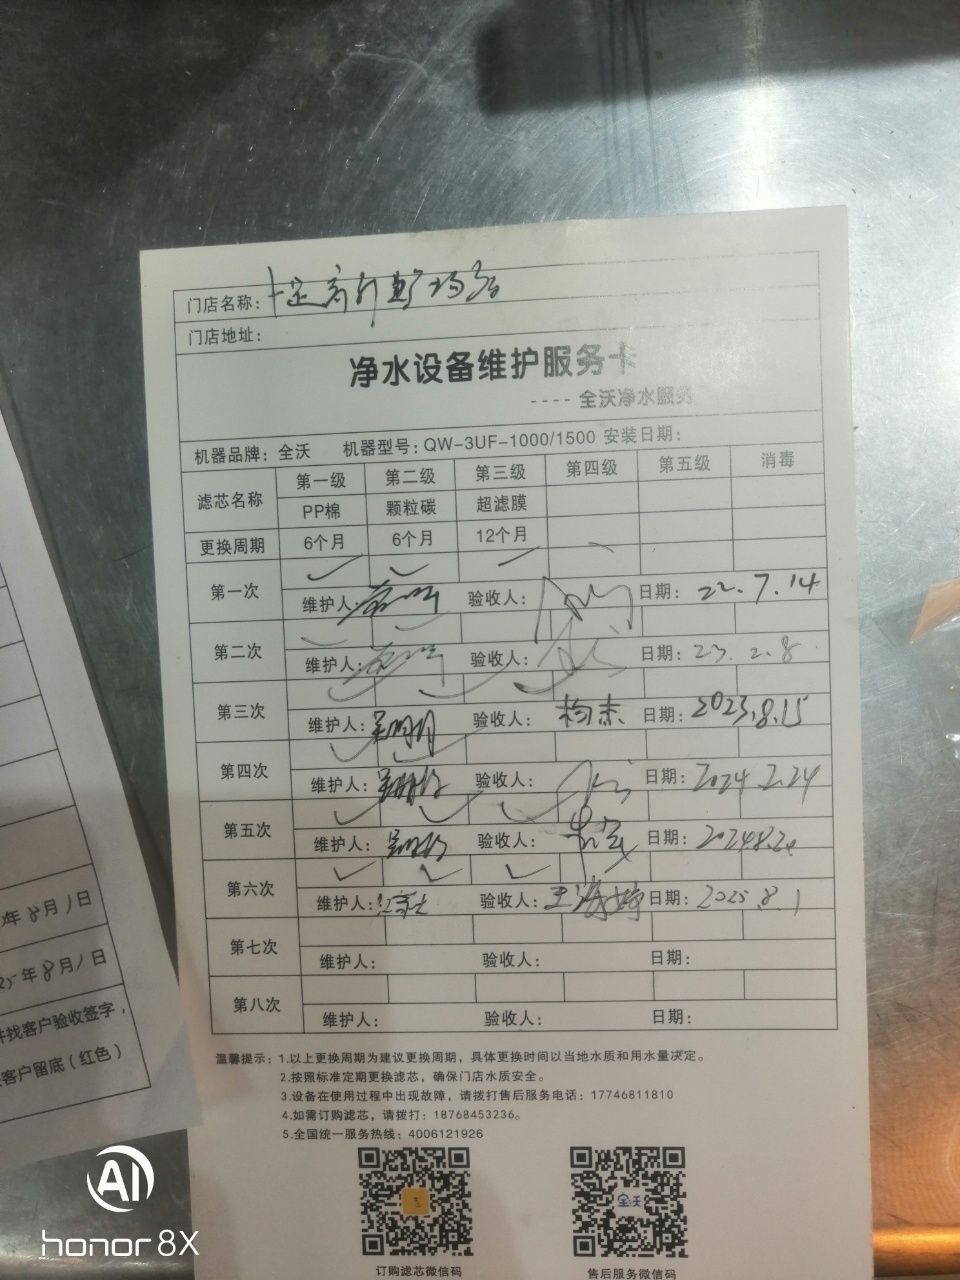 门店名称：
门店地址：
净水设备维护服务卡
---- 全沃净水服务
机器品牌：全沃 机器型号：QW-3UF-1000/1500 安装日期：
滤芯名称 第一级 第二级 第三级 第四级 第五级 消毒
PP棉 颗粒碳 超滤膜
更换周期 6个月 6个月 12个月
第一次
维护人： 验收人： 日期：22.7.14
第二次
维护人： 验收人： 日期：23.2.8
第三次
维护人： 验收人： 日期：2023.8.15
第四次
维护人： 验收人： 日期：2024.2.24
第五次
维护人： 验收人： 日期：20248.20
第六次
维护人： 验收人：王海婷 日期：2025.8.1
第七次
维护人： 验收人： 日期：
第八次
维护人： 验收人： 日期：
温馨提示：1.以上更换周期为建议更换周期，具体更换时间以当地水质和用水量决定。
2.按照标准定期更换滤芯，确保门店水质安全。
3.设备在使用过程中出现故障，请拨打售后服务电话：17746811810
4.如需订购滤芯，请拨打：18768453236。
5.全国统一服务热线：4006121926
全沃
订购滤芯微信码 售后服务微信码
年8月1日
年8月1日
找客户验收签字，
客户留底（红色）
AI
honor 8X